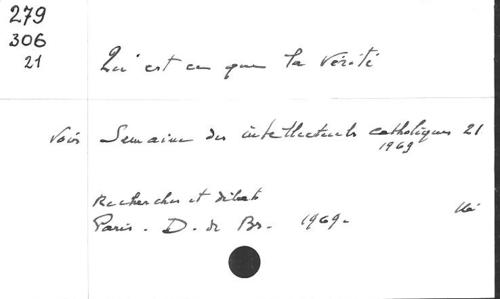 279
306
21
Qu'est ce que la Vérité
Voir Semaine des intellectuels catholiques 21
1969
Recherches et débats
Paris - D. de Br. 1969-